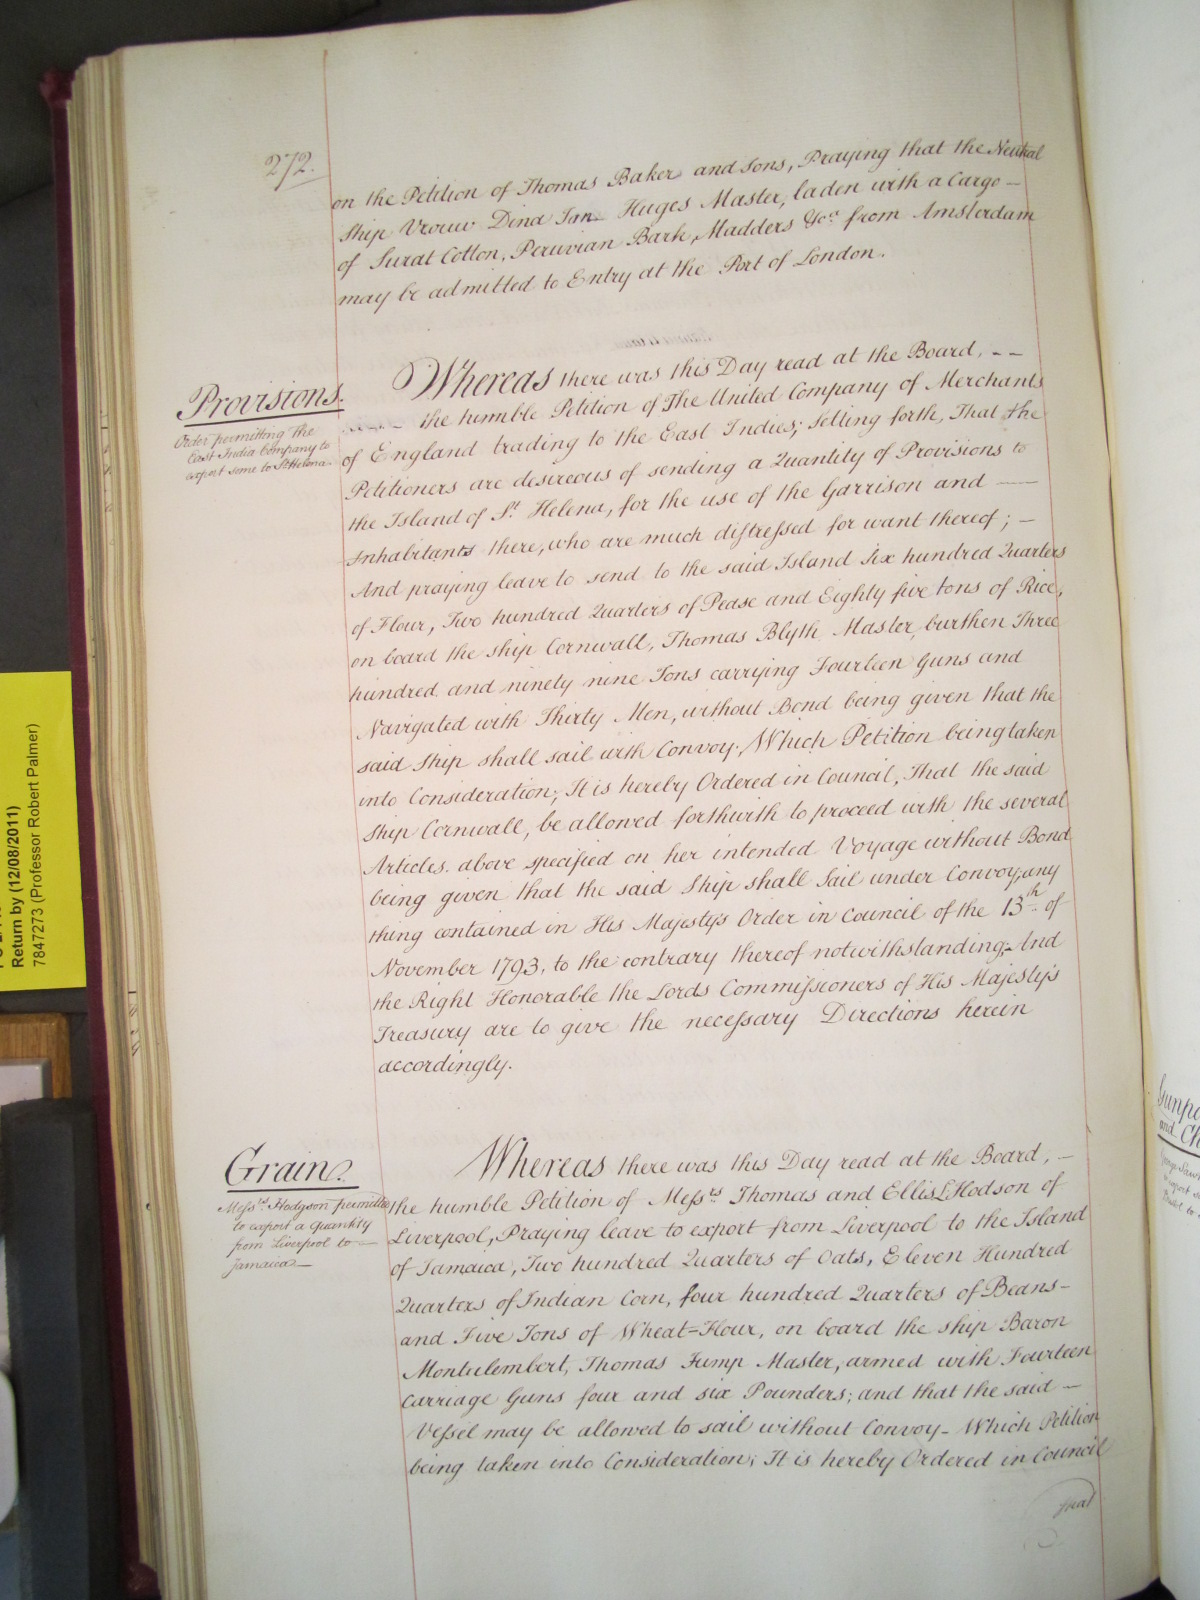 272.
on the Petition of Thomas Baker and Sons, Praying that the Neutral
Ship Vrouw Dina Jan Huges Master, laden with a Cargo –
of Surat Cotton, Peruvian Bark, Madders &ca. from Amsterdam
may be admitted to Entry at the Port of London.
Provisions.
Order permitting the
East India Company to
export some to St. Helena.
Whereas there was this Day read at the Board, – –
the humble Petition of The United Company of Merchants
of England trading to the East Indies; Setting forth, That the
Petitioners are desireous of sending a Quantity of Provisions to
the Island of St. Helena, for the use of the Garrison and —
Inhabitants there, who are much distressed for want thereof; –
And praying leave to send to the said Island Six hundred Quarters
of Flour, Two hundred Quarters of Pease and Eighty five tons of Rice,
on board the Ship Cornwall, Thomas Blyth Master, burthen Three
hundred and ninety nine Tons carrying Fourteen Guns and
Navigated with Thirty Men, without Bond being given that the
said Ship shall sail with Convoy; Which Petition being taken
into Consideration; It is hereby Ordered in Council, That the said
Ship Cornwall, be allowed forthwith to proceed with the several
Articles above specified on her intended Voyage without Bond
being given that the said Ship shall Sail under Convoy; any
thing contained in His Majesty's Order in Council of the 13th. of
November 1793, to the contrary thereof notwithstanding; And
the Right Honorable the Lords Commissioners of His Majesty's
Treasury are to give the necessary Directions herein
accordingly.
Grain.
Messrs. Hodgson permitted
to export a Quantity
from Liverpool to —
Jamaica —
Whereas there was this Day read at the Board, –
the humble Petition of Messrs. Thomas and Ellis L. Hodson of
Liverpool, Praying leave to export from Liverpool to the Island
of Jamaica, Two hundred Quarters of Oats, Eleven Hundred
Quarters of Indian Corn, four hundred Quarters of Beans –
and Five Tons of Wheat=Flour, on board the ship Baron
Montulembert, Thomas Jump Master, armed with Fourteen
Carriage Guns four and six Pounders; and that the said –
Vessel may be allowed to sail without Convoy – Which Petition
being taken into Consideration; It is hereby Ordered in Council
that
Return by (12/08/2011)
7847273 (Professor Robert Palmer)
and Ch